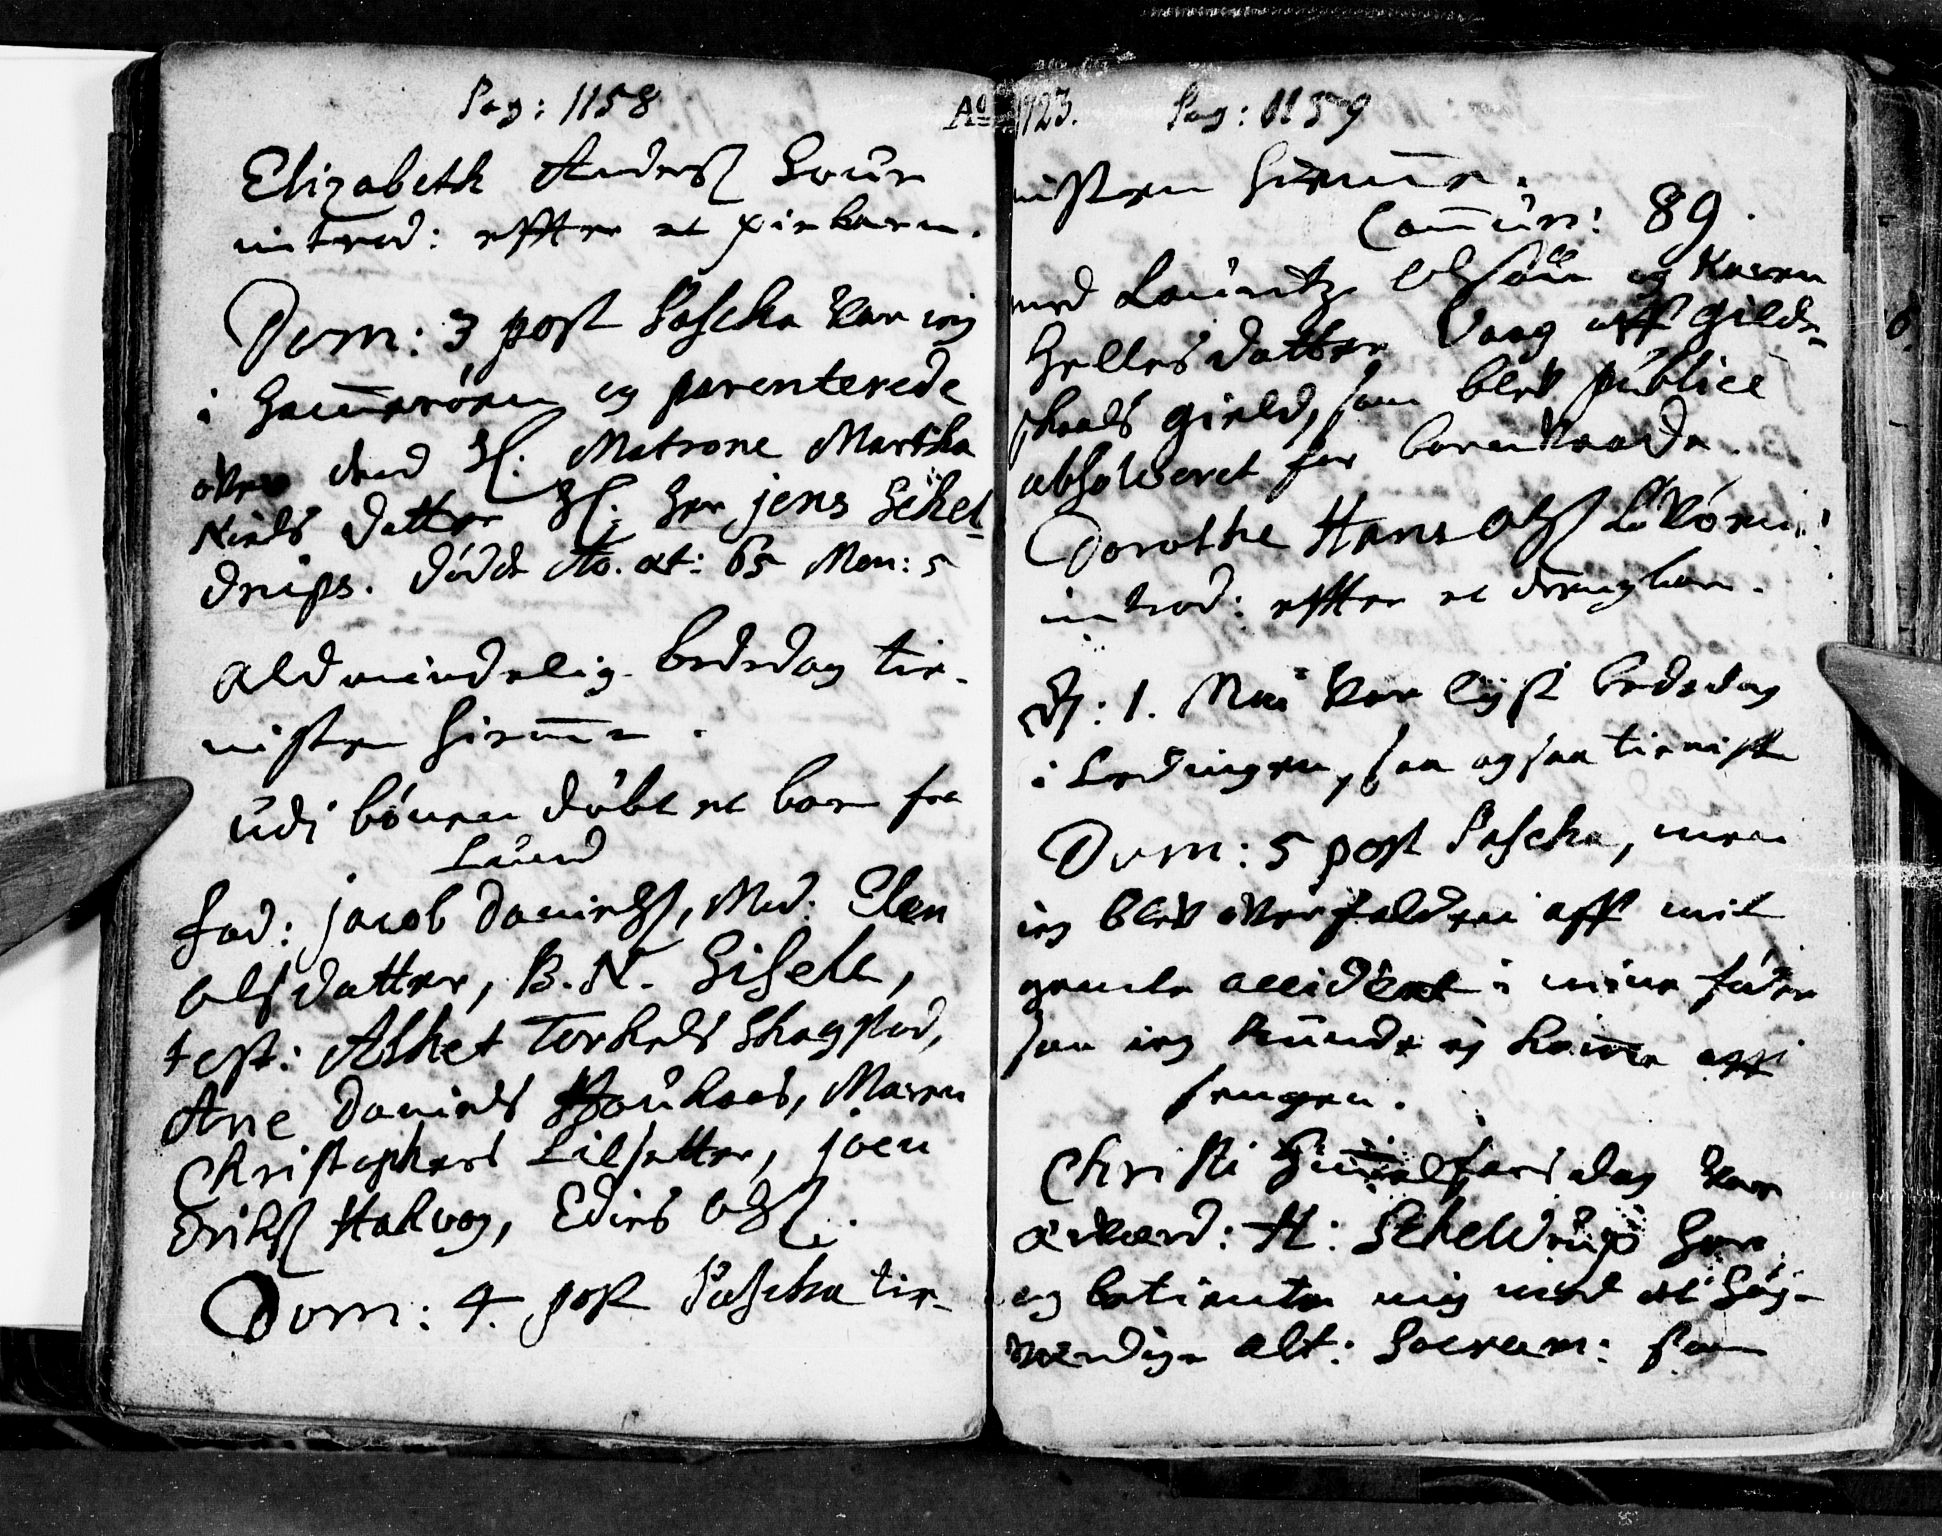 Pag: 1158
Elizabeth Anderß
introd: effter et piebarn.
Dom: 3 post Pascha var ieg
i Hammerøen og parenterede
over dend Sl: Matrone Martha
Niels datter Sl: Her Jens Schel-
drups. døde Ao. æt: 65 Men: 5
Aldmindelig bededag tie-
nisten hiemme.
Udj bønen døbt et barn fra
Lund
fad: Jacob Danielß, Mod: Elen
Olsdatter, B. N. Gisele,
test: Alhet Torkels Skagstad,
Ane Daniels, Maren
Christophers Lilsetter, Joen
Erikß Hakvog, Edies Olß.
Dom: 4. post Pascha tie-
Ao 1723. Pag: 1159
nisten hiemme.
Commun: 89.
med Lauridtz Olsøn og Karen
Hellesdatter Vaag aff Gild-
skaals gield, som blev publice
absolveret for
Dorothe Hans Olß Løvøen
introd: effter et drengbarn.
d: 1. Maii var lyst bededag
i Lødingen, saa ogsaa tieniste
Dom: 5 post Pascha, men
ieg blev overfalden aff mit
gamle accident i mine føder
saa ieg kunde ej komme aff
sengen.
Christi Himmelfartsdag var
ærværd: H: Scheldrup her
og betiente mig med det høy-
værdige alt: Sacram: som